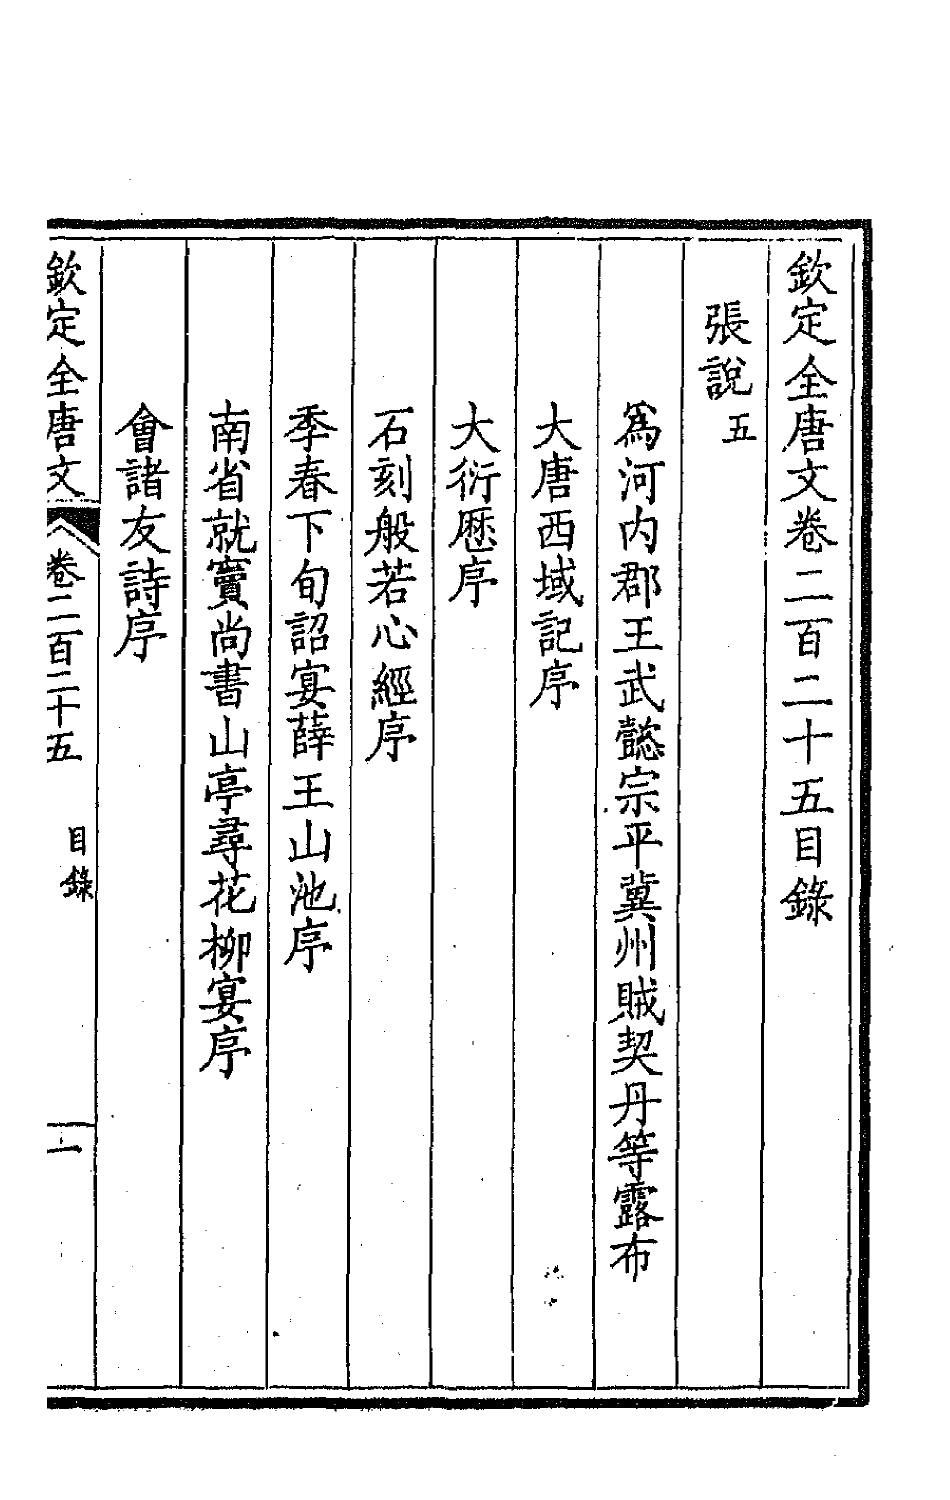 欽定全唐文卷二百二十五目錄
張說五
爲河内郡王武懿宗平冀州賊契丹等露布
大唐西域記序
大衍厯序
石刻般若心經序
季春下旬詔宴薛王山池序
南省就竇尚書山亭尋花柳宴序
會諸友詩序
欽定全唐文 卷二百二十五 目錄 一